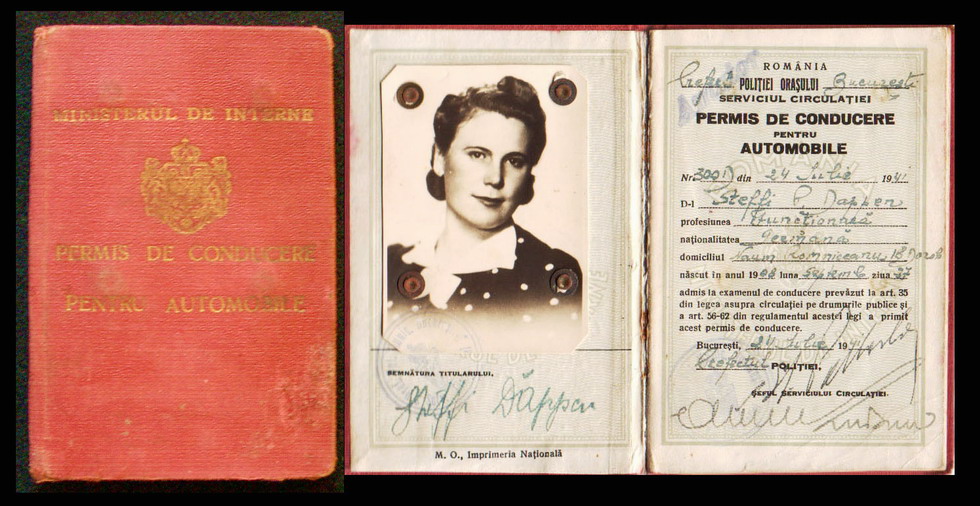 MINISTERUL DE INTERNE
PERMIS DE CONDUCERE
PENTRU AUTOMOBILE
SEMNĂTURA TITULARULUI,
Steffi Däppen
M. O., Imprimeria Națională
ROMÂNIA
POLIȚIEI ORAȘULUI București
SERVICIUL CIRCULAȚIEI
PERMIS DE CONDUCERE
PENTRU
AUTOMOBILE
Nr. din 24 Iulie 1941
D-l Steffi P. Dappen
profesiunea funcționară
naționalitatea germană
domiciliul Naum Romniceanu 18
născut în anul 19 luna Septemb ziua 27
admis la examenul de conducere prevăzut la art. 35
din legea asupra circulației pe drumurile publice și
a art. 56-62 din regulamentul acestei legi a primit
acest permis de conducere.
București, 24 Iulie 1941
Prefectul POLIȚIEI,
ȘEFUL SERVICIULUI CIRCULAȚIEI